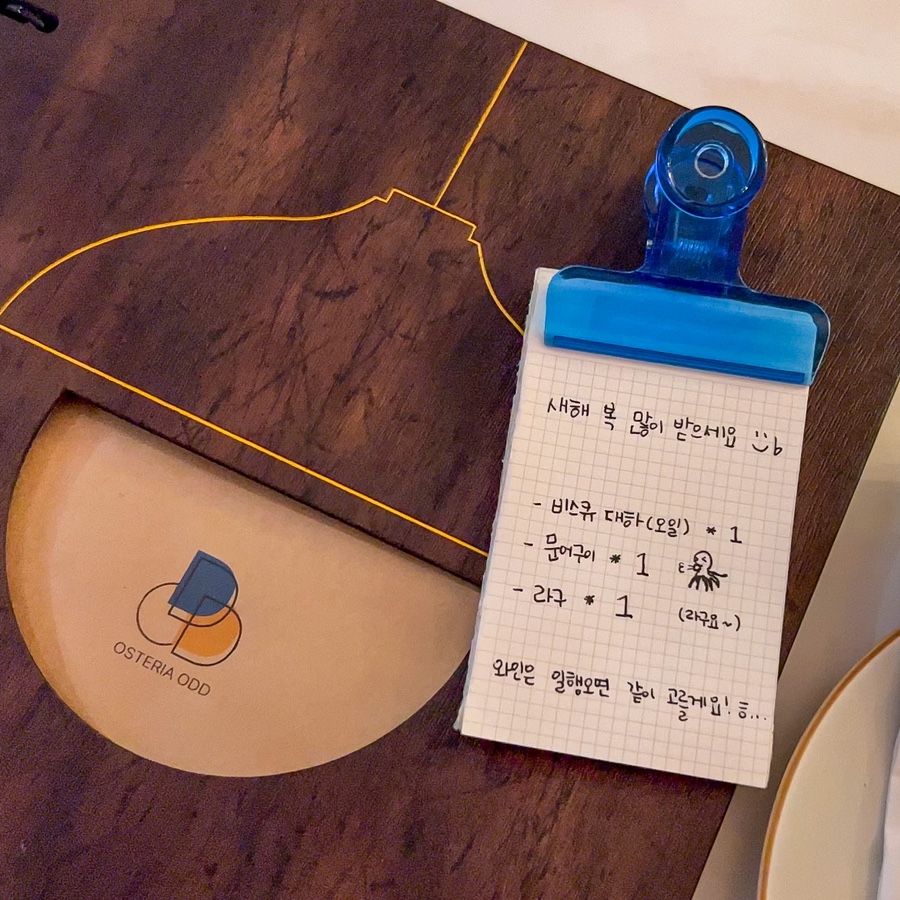 새해 복 많이 받으세요
- 비스큐 대하(오일) * 1
- 문어구이 * 1
- 라구 * 1
(라구요~)
와인은 일행오면 같이 고를게요! ㅎ...
OSTERIA ODD